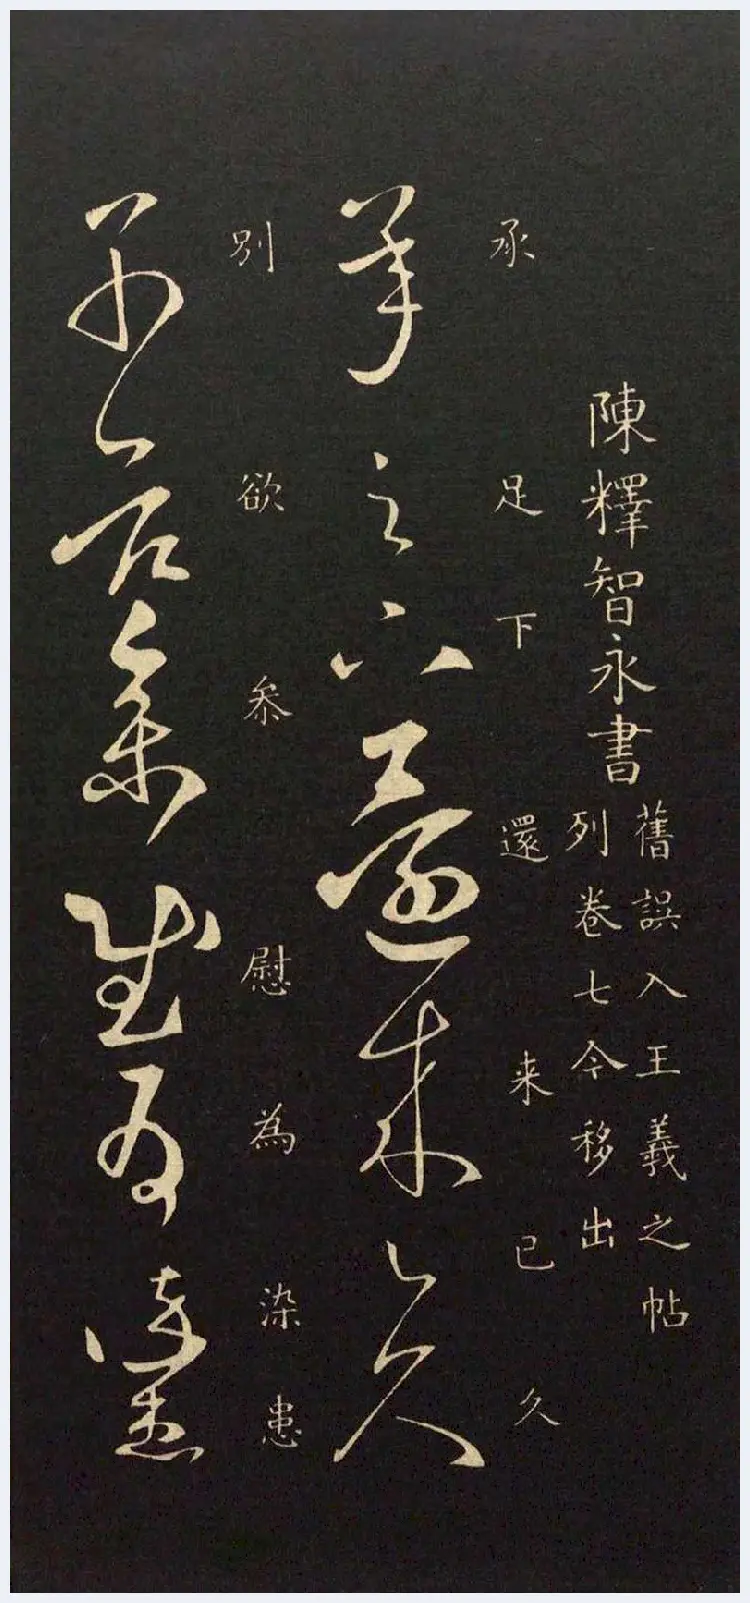 陳釋智永書
舊誤入王羲之帖
列卷七今移出
承足下還来已久
承足下還来已久
別欲叅慰為染患
別欲叅慰為染患